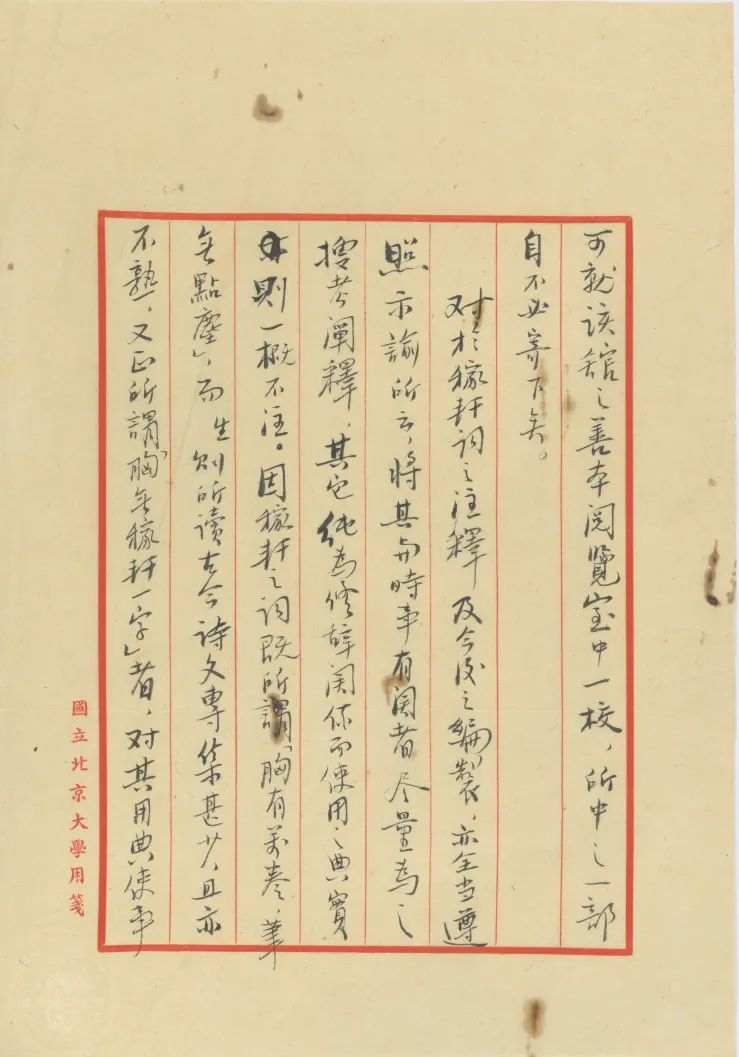 可就该館之善本閱覽室中一校，所中之一部
自不必寄下矣。
对於稼軒詞之注釋及今後之編製，亦全当遵
照示諭所云，將其与時事有関者尽量為之
搜考阐釋，其它純為修辞関係而使用之典實
則一概不注。因稼軒之詞既所謂「胸有萬卷，筆
無點塵」，而生則所讀古今詩文專集甚少，且亦
不熟，又正所謂「胸無稼軒一字」者，对其用典使事
國立北京大學用箋